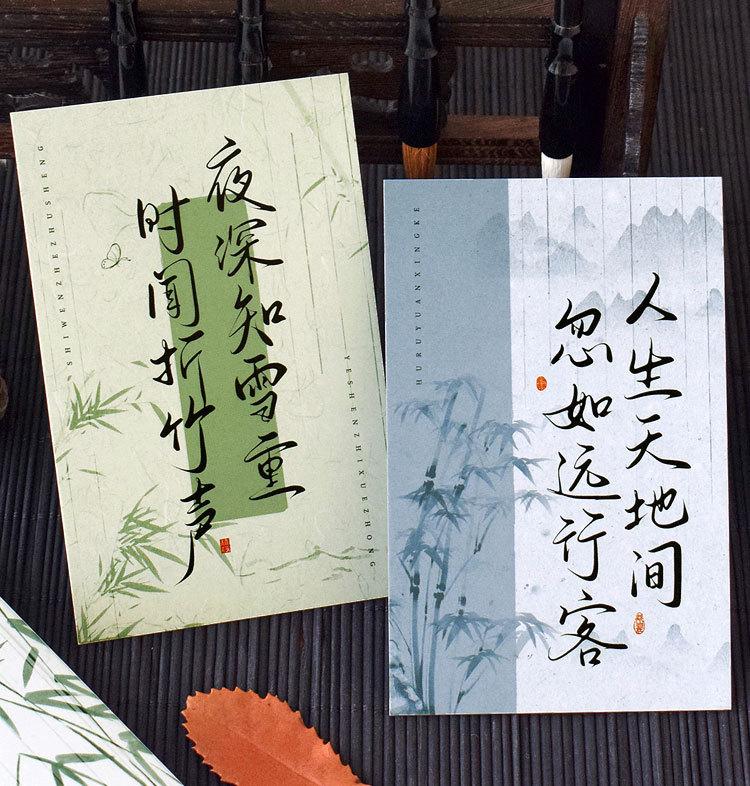 夜深知雪重
时闻折竹声
SHIWENZHEZHUSHENG
YESHENZHIXUEZHONG
人生天地间
忽如远行客
HURUYUANXINGKE